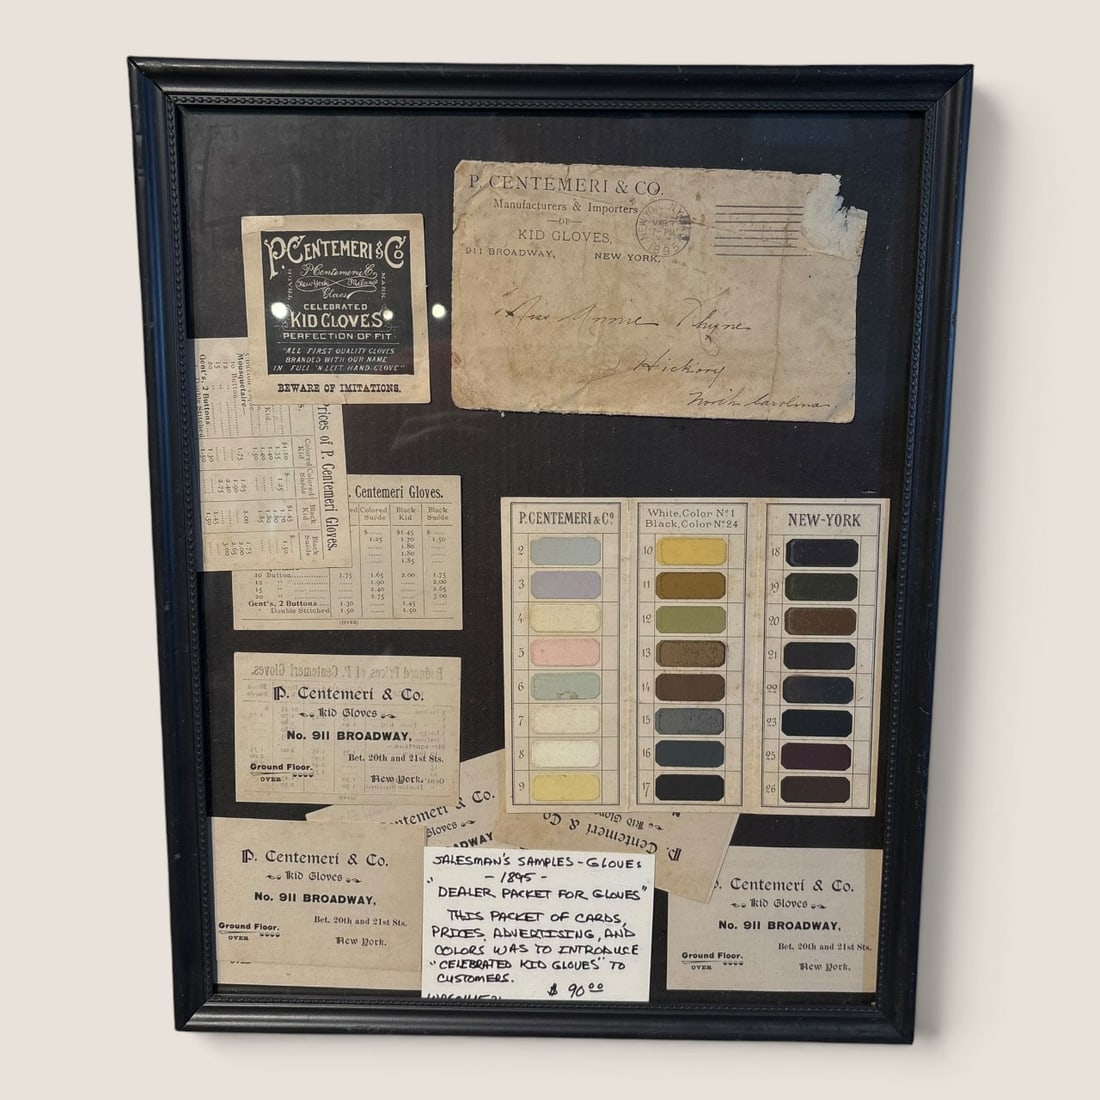 P. CENTEMERI & CO.
Manufacturers & Importers
—OF—
KID GLOVES,
911 BROADWAY, NEW YORK.
Miss Minnie Rhyne
Hickory
North Carolina
P. CENTEMERI & Co
P. Centemeri & Co,
New York Milano
Gloves
TRADE MARK
CELEBRATED
KID GLOVES
PERFECTION-OF-FIT
"ALL FIRST QUALITY GLOVES
BRANDED WITH OUR NAME
IN FULL 'N LEFT HAND-GLOVE"
BEWARE OF IMITATIONS.
Prices of P. Centemeri Gloves.
Colored Kid Colored Suède Black Kid Black Suède
Mousquetaire
Gent's, 2 Buttons
Double Stitched
. Centemeri Gloves.
Colored Suède Black Kid Black Suède
$ .... $1.45 $ ....
1.25 1.70 1.50
.... 1.80 ....
.... 1.85 ....
10 Button 1.75 1.65 2.00 1.75
12 " 1.90 2.00
15 " 2.40 2.65
20 " 2.75 3.00
Gent's, 2 Buttons 1.30 1.45
" Double Stitched 1.50 1.50
(OVER)
P. CENTEMERI & Co
White, Color No 1
Black, Color No 24
NEW-YORK
2 10 18
3 11 19
4 12 20
5 13 21
6 14 22
7 15 23
8 16 25
9 17 26
Reduced Prices of P. Centemeri Gloves.
P. Centemeri & Co.
Kid Gloves
No. 911 BROADWAY,
Bet. 20th and 21st Sts.
Ground Floor.
OVER
New York.
Centemeri & Co.
Gloves
BROADWAY
Centemeri & Co.
Kid Gloves
P. Centemeri & Co.
Kid Gloves
No. 911 BROADWAY,
Bet. 20th and 21st Sts.
Ground Floor.
OVER
New York.
SALESMAN'S SAMPLES - GLOVES
- 1895 -
"DEALER PACKET FOR GLOVES"
THIS PACKET OF CARDS,
PRICES, ADVERTISING, AND
COLORS WAS TO INTRODUCE
"CELEBRATED KID GLOVES" TO
CUSTOMERS.
$ 90 00
P. Centemeri & Co.
Kid Gloves
No. 911 BROADWAY,
Bet. 20th and 21st Sts.
Ground Floor.
OVER
New York.